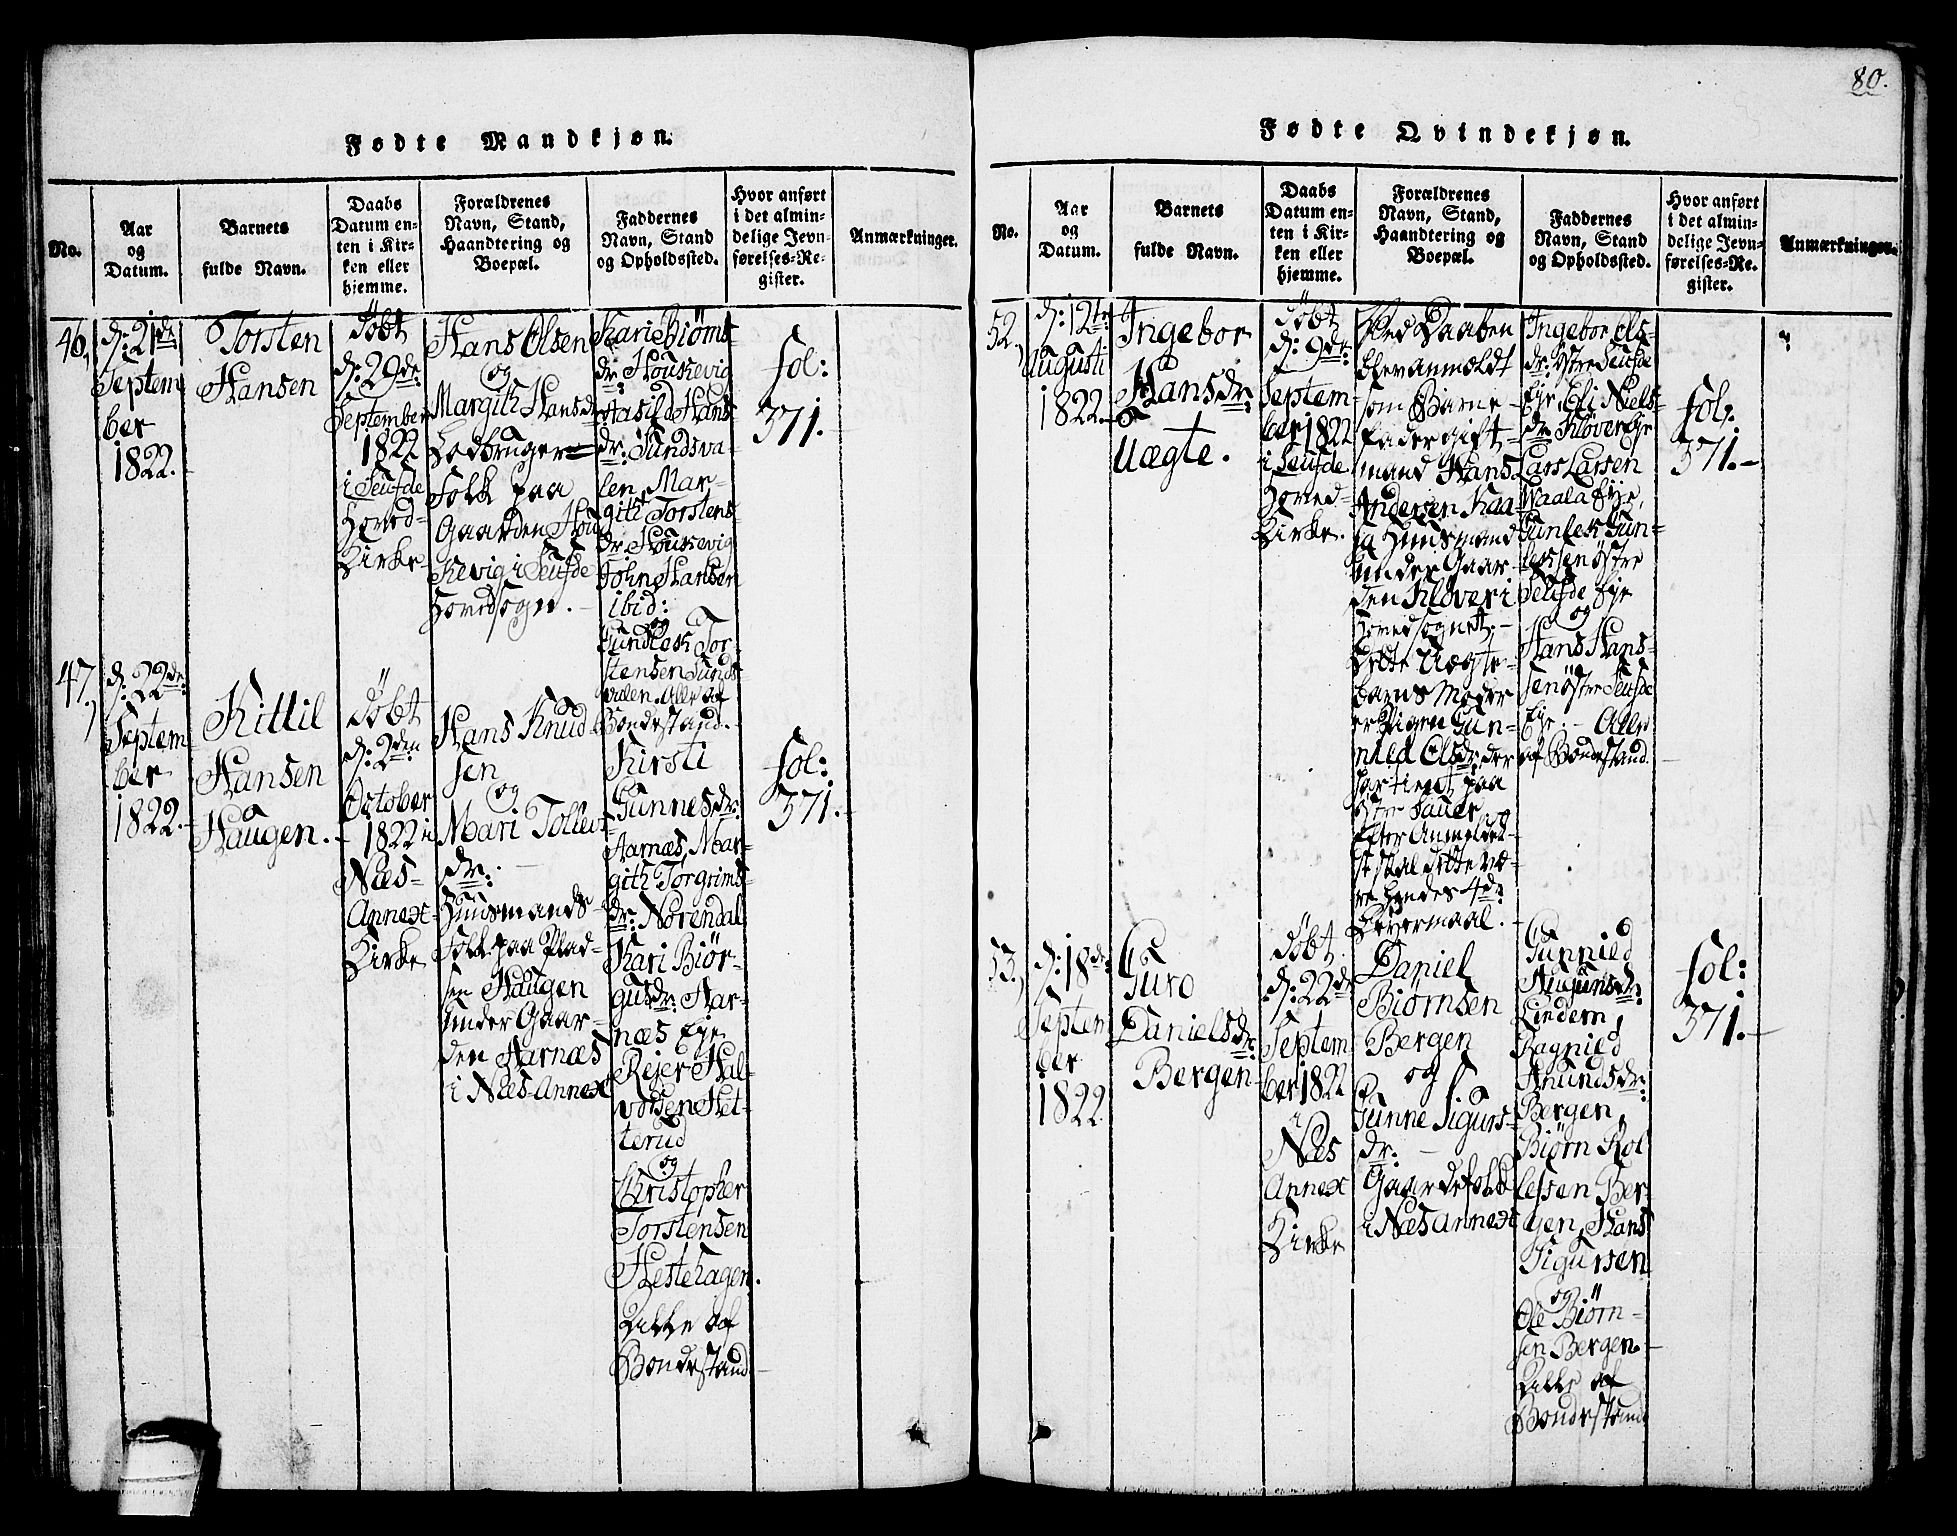 80.
Fødte Mandkjøn.
No.
Aar
og
Datum.
Barnets
fulde Navn.
Daabs
Datum en-
ten i Kir-
ken eller
hjemme.
Forældrenes
Navn, Stand,
Haandtering og
Boepæl.
Faddernes
Navn, Stand
og Opholdssted.
Hvor anført
i det almin-
delige Jevn-
førelses-Re-
gister.
Anmærkninger.
46,
d: 21de
Septem
ber
1822.
Torsten
Hansen
Døbt
d: 29de
September
1822
i Seufde
Hoved-
Kirke
Hans Olsen
og
Margith Hansdr
Folk paa
Gaarden Hou
kevig i Seufde
Hovedsogn.
Karie Biørns-
dr: Houkevig
Aasild Hans-
dr: Sundsva-
len, Mar-
gith Torstens-
dr: Houkevig
John Hansen
ibid:
og
Gundlek Tor-
stensen Sunds-
valen. Alle af
Bondestand.
fol:
371.
47,
d: 22de
Septem
ber
1822.
Kittil
Hansen
Haugen.
Døbt
d: 2den
October
1822 i
Næs-
Annex-
Kirke
Hans Knud-
sen
og
Mari Tollevs-
dr:
Huusmands-
Folk paa Plad-
sen Haugen
under Gaar-
den Aarnæs
i Næs-Annex
Kirsti
Gunnesdr:
Aarnæs, Mar-
gith Torgrims-
dr: Nordendal
Kari Biør-
gusdr: Aar-
næs Eje
Rejer Hal-
vorsen Het-
terud
og
Christopher
Torstensen
Hestehagen.
Alle af
Bondestand
fol:
371.
Fødte Qvindekjøn.
No.
Aar
og
Datum.
Barnets
fulde Navn.
Daabs
Datum en-
ten i Kir-
ken eller
hjemme.
Forældrenes
Navn, Stand,
Haandtering og
Boepæl.
Faddernes
Navn, Stand
og Opholdssted.
Hvor anført
i det almin-
delige Jevn-
førelses-Re-
gister.
Anmærkninger.
52,
d: 12te
Augusti
1822.
Ingebor
Hansdr:
Uægte.
Døbt
d: 9de
Septem-
ber 1822
i Seufde
Hoved-
Kirke.
Ved Daaben
blev anmeldt
som Barne-
fader gift-
mand Hans
Andersen Kaa-
sa Huusmand
under Gaar-
den Kløver i
Hovedsognet.-
Dette Uægte-
barns Moder
er Pigen Gun-
nild Olsdr: der
har tient paa
Østre Sauer
Efter Anmeldel-
se skal dette væ-
re hendes 4de
Leyermaal.
Ingebor Ols-
dr: Østre Seufde
Eje, Eli Niels-
dr: Kløver Eje
Lars Larsen
Waala Eje,
Gunlek Gun-
leksen Østre
Seufde Eje
og
Hans Hans-
sen Østre Seufde
Eje. - Alle
af Bondestand.
fol:
371.-
53,
d: 18de
Septem
ber
1822
Guro
Danielsdr:
Bergen
Døbt
d: 22de
Septem
ber 1822
i
Næs
Annex
Kirke
Daniel
Biørnsen
Bergen
og
Gunne Sigurs-
dr: -
Gaardefolk
i Næs Annex
Gunnild
Augunsdr:
Lindem,
Ragnild
Anundsdr:
Bergen,
Biørn Rol
lefsen Ber-
gen, Hans
Sigursen
og
Ole Biørn-
sen Bergen.
Alle af
Bondestand
fol:
371.-